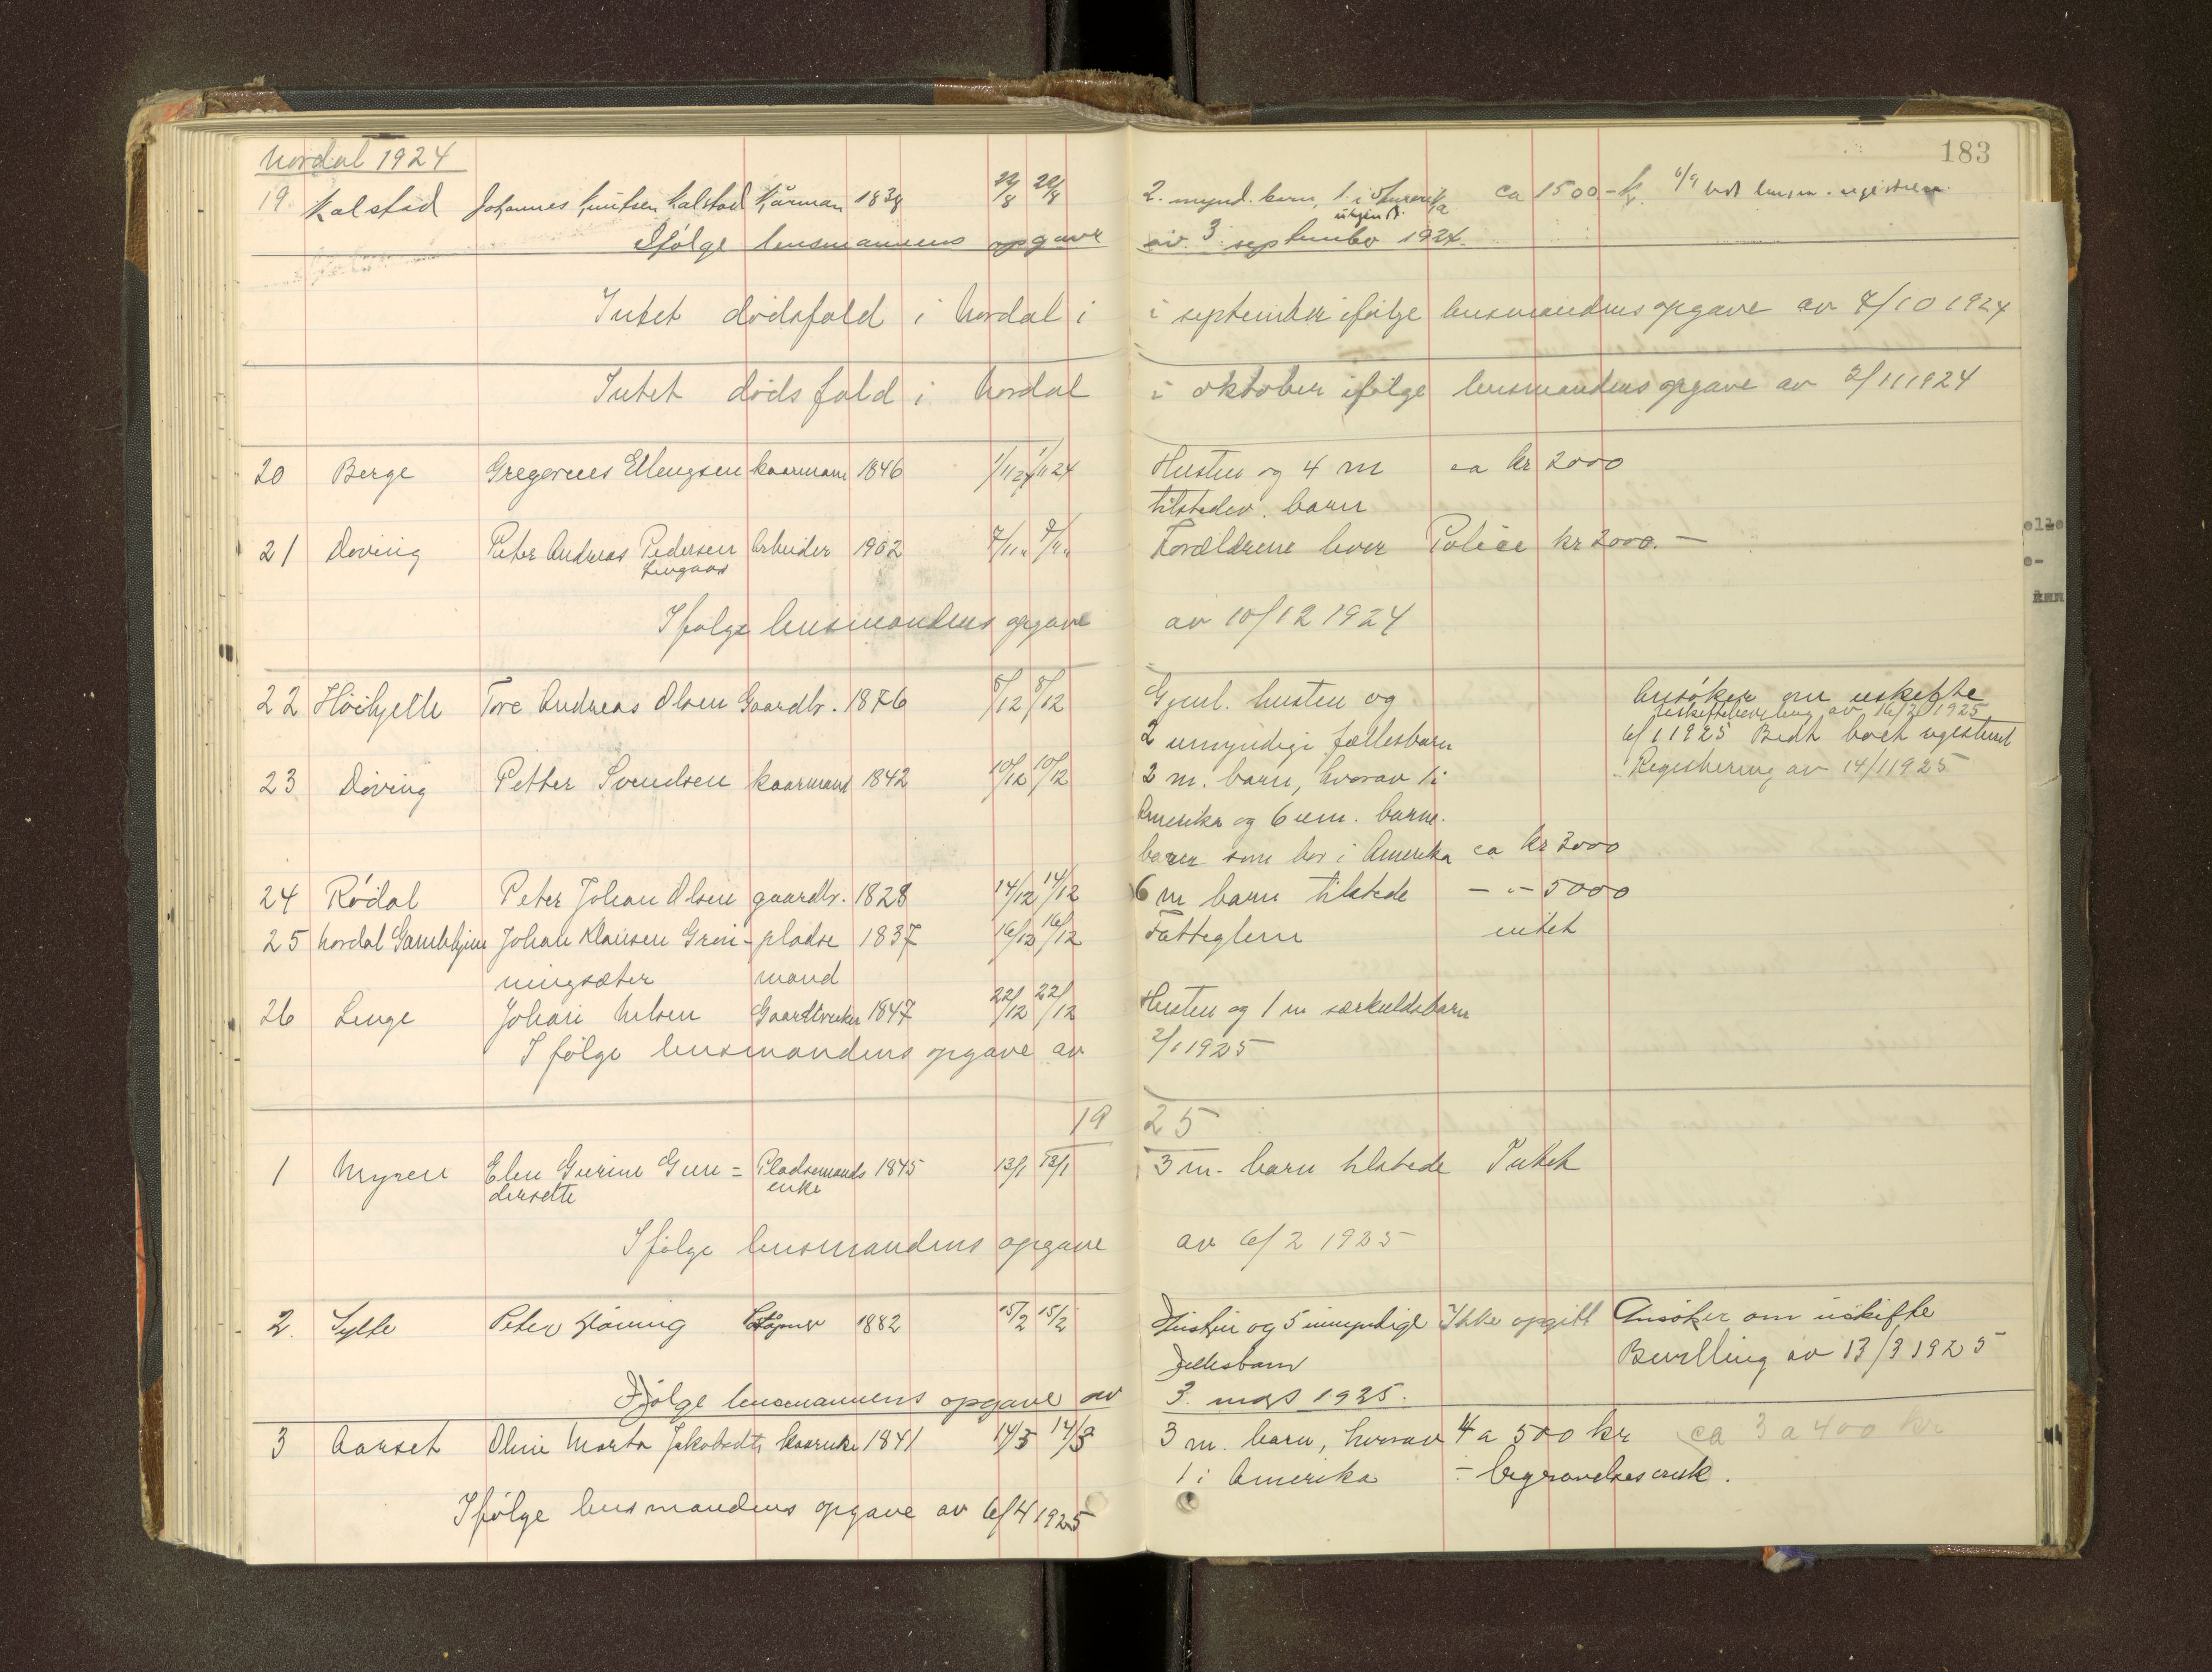 183
Nordal 1924
19. Kalstad Johannes Knutsen Kalstad Kårman 1838 22/8 22/8 2. mynd. barn, 1 i Amerika ca 1500 - kr. 6/9 bedt lensm. registrere.
Ifølge lensmannens opgave av 3 september 1924.
Intet dødsfald i Nordal i i september ifølge lensmandens opgave av 7/10 1924
Intet dødsfald i Nordal i oktober ifølge lensmandens opgave av 3/11 1924
20 Berge Gregorius Ellingsen kaarmann 1846 1/11 24 1/11 24 Hustru og 4 m ca kr 2000
tilstedev. barn
21 Døving Peter Andreas Pedersen Arbeider 1902 7/11 Forældrene lever Police kr 2000.-
Ifølge lensmandens opgave av 10/12 1924
22 Høihjelle Tore Andreas Olsen Gaardbr. 1876 8/12 8/12 Gjenl. hustru og Ansøker om uskifte
Uskiftebevilling av 16/2 1925
2 umyndige fællesbarn 6/1 1925 Bedt boet registreret
23 Døving Petter Svendsen kaarmand 1842 10/12 10/12 2 m. barn, hvorav 1 i Registrering av 14/1 1925
Amerika og 6 um. barne-
barn som bor i Amerika ca kr 3000
24 Rødal Peter Johan Olsen gaardbr. 1828 14/12 14/12 6 m barn tilstede - " - 5000
25 Nordal Gamlehjem Johan Klausen Grøn- plads- 1837 16/12 16/12 Fattiglem intet
ningsæter mand
26 Linge Johan Nilsen Gaardbruker 1847 22/12 22/12 Hustru og 1 m særkuldsbarn
Ifølge lensmandens opgave av 2/1 1925
19 25
1 Myren Elen Gurine Gun= Pladsemands 1845 13/1 13/1 3 m. barn tilstede Intet
dersette enke
Ifølge lensmandens opgave av 6/2 1925
2. Sylte Peter Døving 1882 15/2 15/2 Hustru og 5 umyndige Ikke opgitt Ansøker om uskifte
Fellesbarn Bevilling av 13/3 1925
Ifølge lensmannens opgave av 3. mars 1925.
3 Aarset Oline Marta Jakobsdtr kaarenke 1841 14/3 14/3 3 m. barn, hvorav 4 a 500 kr ca 3 a 400 kr
1 i Amerika ÷ begravelsesomk.
Ifølge lensmandens opgave av 6/4 1925